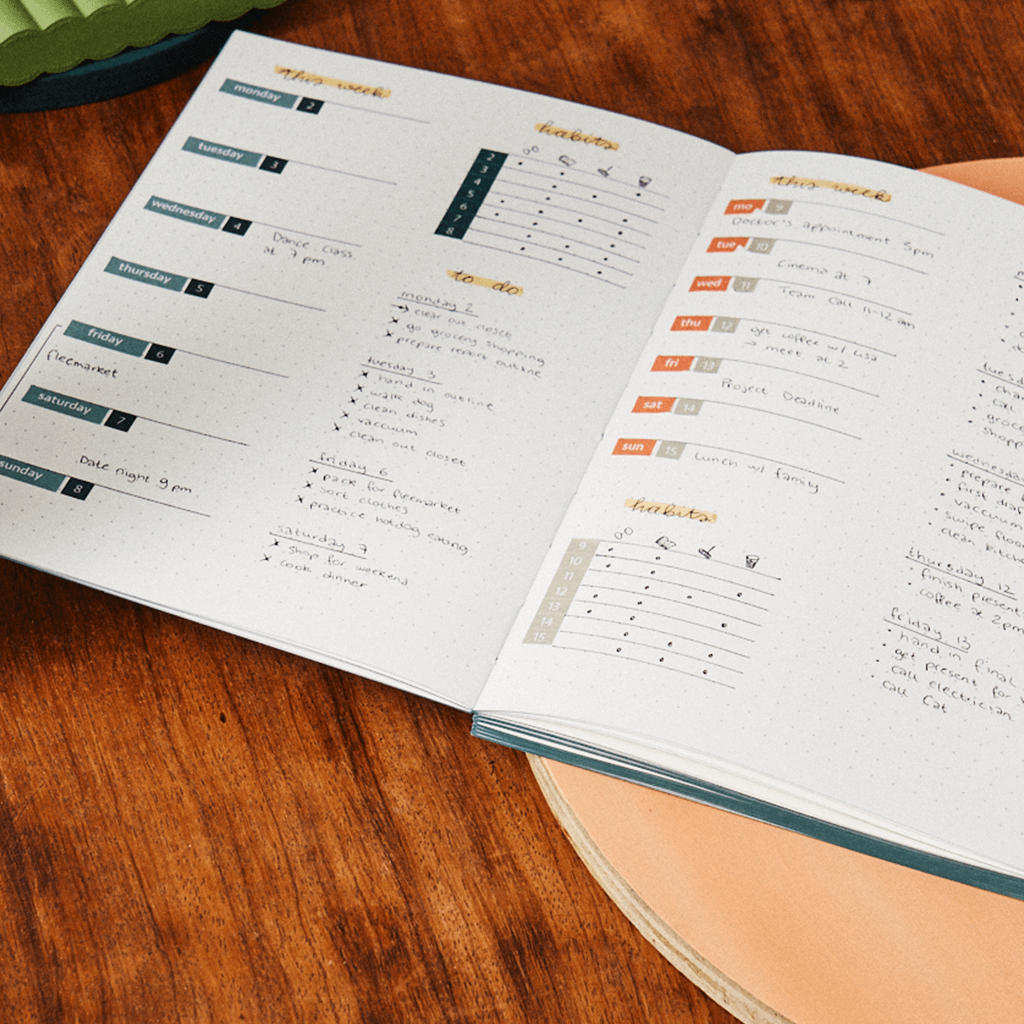 this week
monday 2
tuesday 3
wednesday 4
Dance class
at 7 pm
thursday 5
friday 6
fleemarket
saturday 7
Date night 9 pm
sunday 8
habits
2
3
4
5
6
7
8
to do
monday 2
→ clear out closet
x go grocery shopping
x prepare report outline
tuesday 3
x hand in outline
x walk dog
x clean dishes
x vaccuum
x clean out closet
friday 6
x pack for fleemarket
x sort clothes
x practice hotdog eating
saturday 7
x shop for weekend
x cook dinner
this week
mo 9
Doctor's appointment 3pm
tue 10
Cinema at 7
wed 11
Team call 11-12 am
thu 12
get coffee w/ Lisa
→ meet at 2
fri 13
Project Deadline
sat 14
sun 15
Lunch w/ family
habits
9
10
11
12
13
14
15
tuesd
• call
• groce
• shopp
wednesday
• prepare
• first draf
• vaccuum
• swipe floo
• clean kitch
thursday 12
• finish present
• coffee at 2pm
friday 13
• hand in final
• get present for
• call electrician
• call Cat